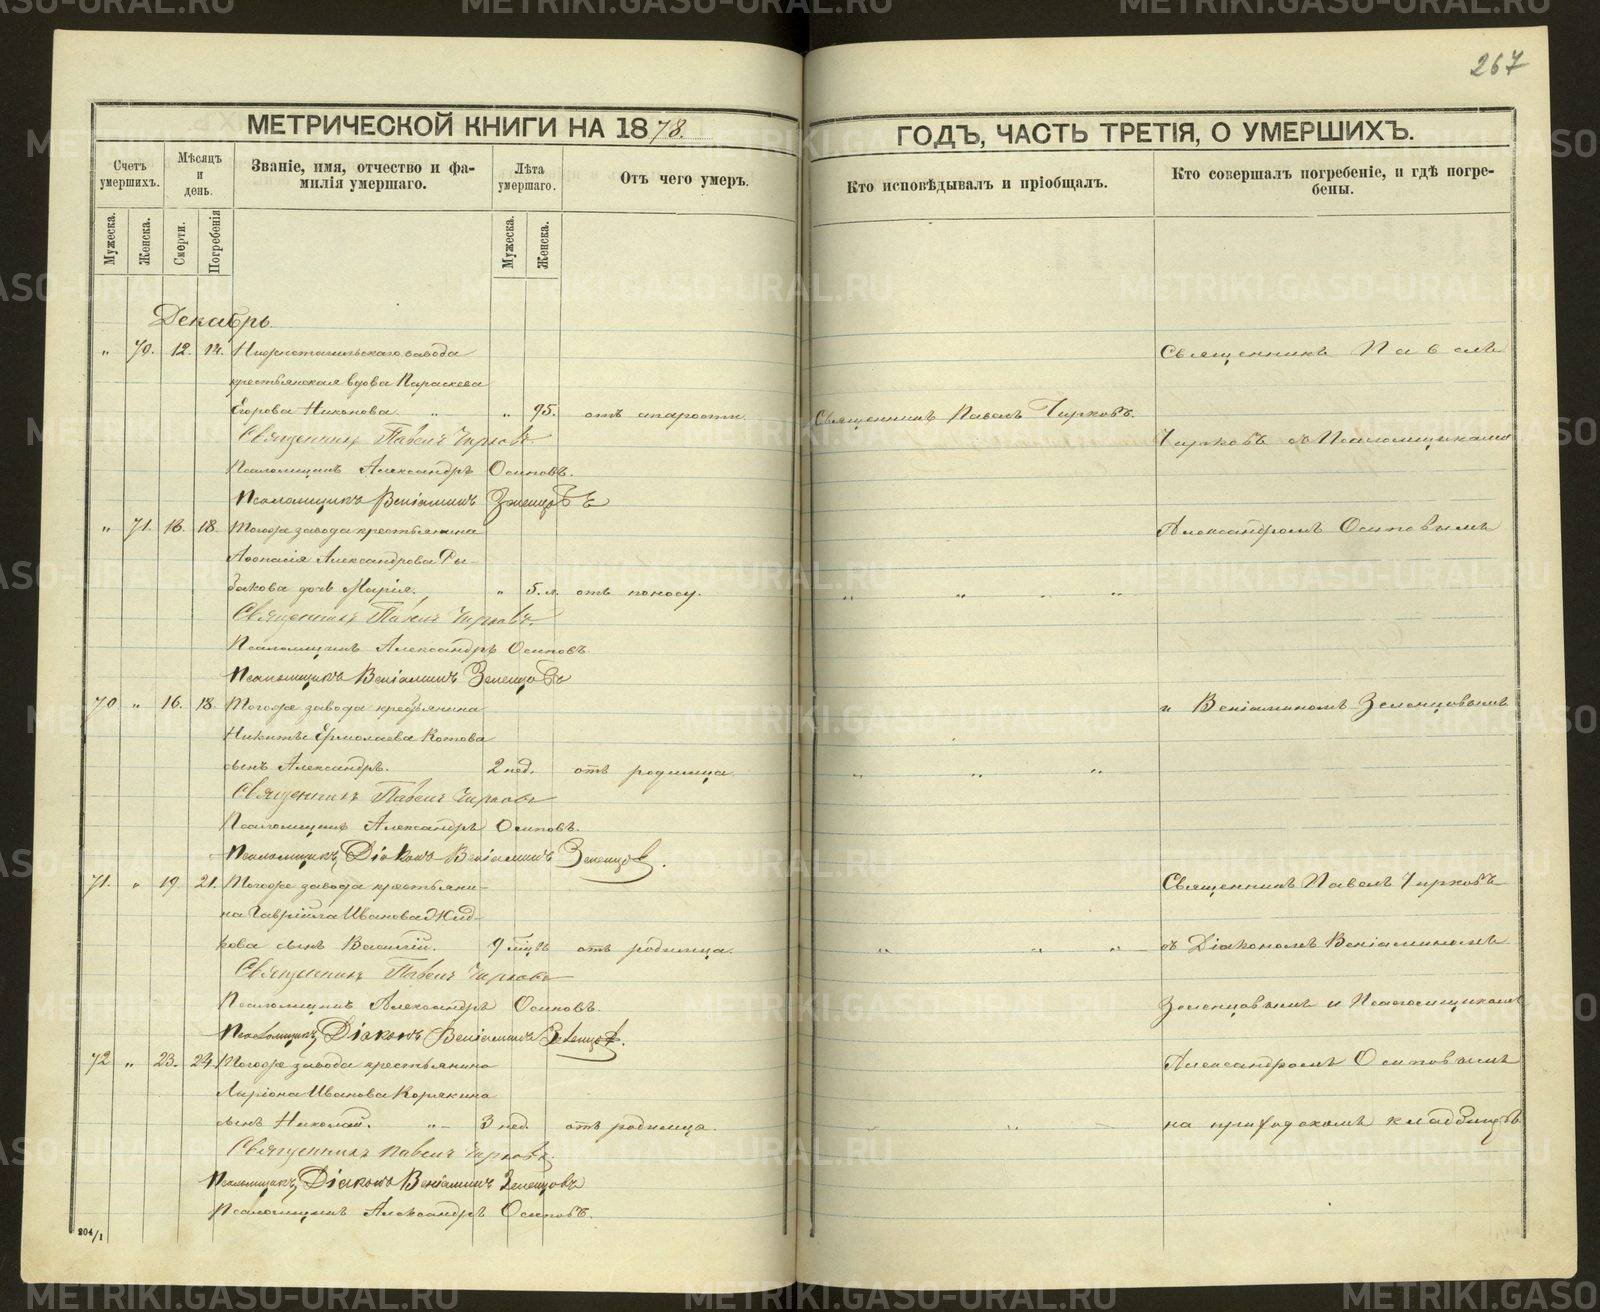 267
МЕТРИЧЕСКОЙ КНИГИ НА 1878.
ГОДЪ, ЧАСТЬ ТРЕТІЯ, О УМЕРШИХЪ.
Счетъ умершихъ.
Мѣсяцъ и день.
Званіе, имя, отчество и фа-
милія умершаго.
Лѣта умершаго.
Отъ чего умеръ.
Кто исповѣдывалъ и пріобщалъ.
Кто совершалъ погребеніе, и гдѣ погре-
бены.
Мужеска.
Женска.
Смерти.
Погребенія
Мужеска.
Женска.
Декабрь
" 70. 12. 14. Нижнетагильскаго завода
крестьянская вдова Параскева
Егорова Никонова " " 95. отъ старости.
Священникъ Павелъ Чирковъ.
Псаломщикъ Александръ Осиповъ.
Псаломщикъ Веніаминъ Зеленцовъ
" 71. 16. 18. Тогоже завода крестьянина
Александрова Ры-
бакова дочь Марія. " 5. л. отъ поносу.
Священникъ Павелъ Чирковъ.
Псаломщикъ Александръ Осиповъ
Псаломщикъ Веніаминъ Зеленцовъ
70 " 16. 18. Тогоже завода крестьянина
Никиты Ермолаева Котова
сынъ Александръ. 2 нед. отъ родимца.
Священникъ Павелъ Чирковъ
Псаломщикъ Александръ Осиповъ.
Псаломщикъ, Діаконъ Веніаминъ Зеленцов.
71. " 19. 21. Тогоже завода крестьяни-
на Гавріила Иванова Жид-
кова сынъ Василій. 9 мѣц. отъ родимца.
Священникъ Павелъ Чирковъ
Псаломщикъ Александръ Осиповъ.
Псаломщикъ, Діаконъ Веніаминъ Зеленцов.
72 " 23. 24. Тогоже завода крестьянина
Ларіона Иванова Корякина
сынъ Николай. " 3 нед. отъ родимца.
Священникъ Павелъ Чирковъ.
Псаломщикъ, Діаконъ Веніаминъ Зеленцовъ
Псаломщикъ Александръ Осиповъ.
204/1
Священникъ Павелъ Чирковъ.
" " " "
" " "
" " "
" " "
Священникъ Павелъ
Чирковъ съ Псаломщиками
Александромъ Осиповымъ
и Веніаминомъ Зеленцовымъ
Священникъ Павелъ Чирковъ
съ Діакономъ Веніаминомъ
Зеленцовымъ и Псаломщикомъ
Александромъ Осиповымъ
на приходскомъ кладбищѣ
METRIKI.GASO-URAL.RU